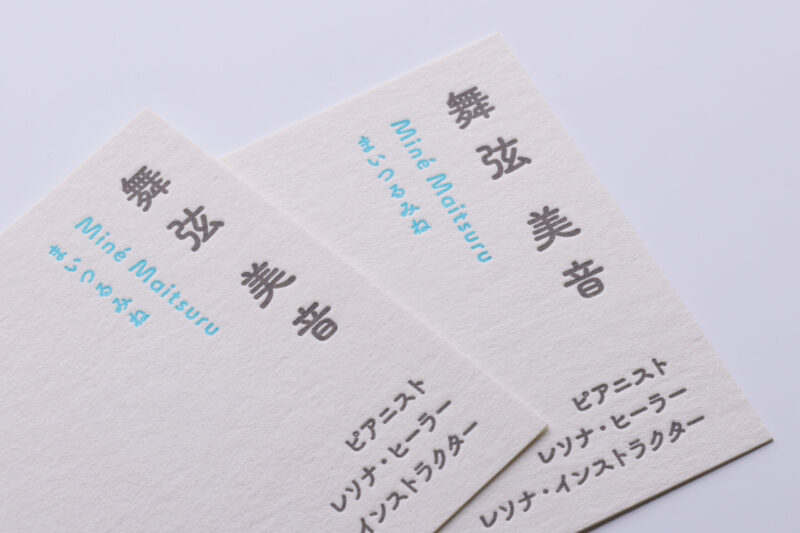 舞弦 美音
Miné Maitsuru
まいつるみね
ピアニスト
レソナ・ヒーラー
インストラクター
舞弦 美音
Miné Maitsuru
まいつるみね
ピアニスト
レソナ・ヒーラー
レソナ・インストラクター